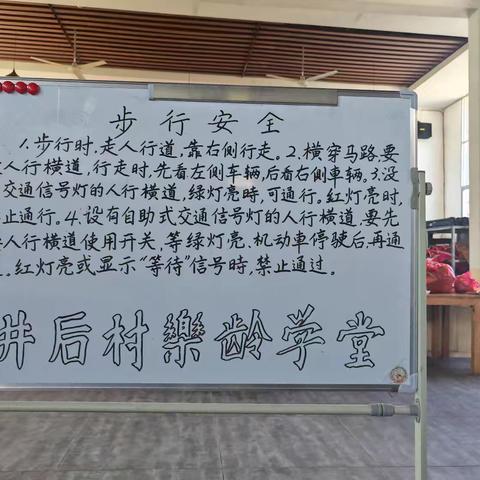 步行安全
1.步行时,走人行道,靠右侧行走。2.横穿马路,要
人行横道,行走时,先看左侧车辆,后看右侧車辆。3.没
交通信号灯的人行横道,绿灯亮時,可通行。红灯亮时,
止通行。4.设有自助式交通信号灯的人行横道,要先
人行横道使用开关,等绿灯亮、机动車停驶后,再通
。红灯亮或显示"等待"信号時,禁止通过。
井后村樂龄学堂